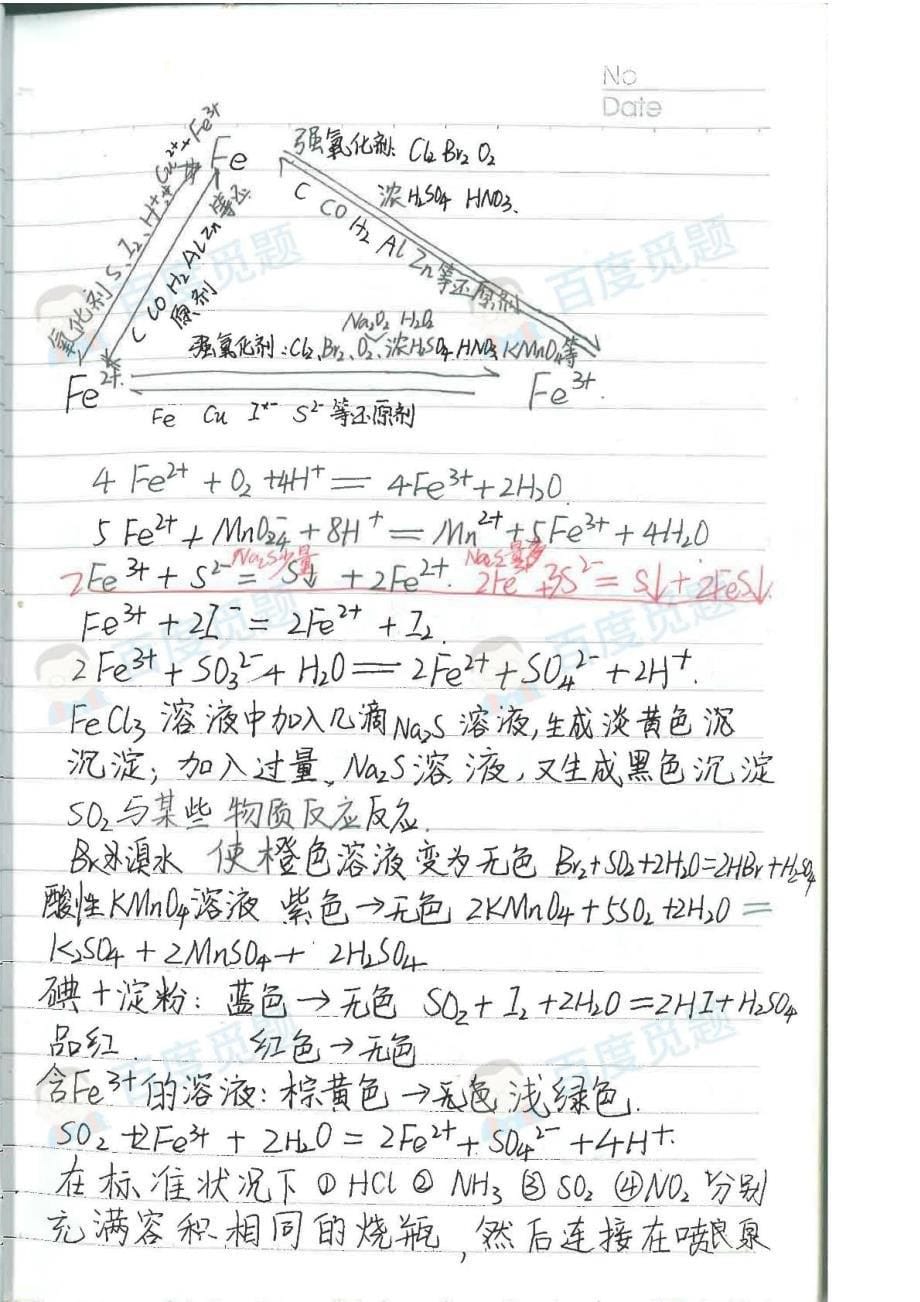 No
Date
Fe
强氧化剂: Cl2 Br2 O2
浓H2SO4 HNO3.
C CO H2 Al Zn等还原剂
氧化剂 S、I2、H+、Cu2+、Fe3+
C CO H2 Al Zn等还
原剂
Na2O2 H2O2
强氧化剂:Cl2、Br2、O2、浓H2SO4 HNO3 KMnO4等
Fe2+ Fe3+
Fe Cu I- S2- 等还原剂
4 Fe2+ + O2 +4H+ = 4Fe3+ + 2H2O
5 Fe2+ + MnO4- + 8H+ = Mn2+ + 5Fe3+ + 4H2O
Na2S少量 Na2S
2Fe3+ + S2- = S↓ + 2Fe2+. 2Fe +3S2- = S↓+2FeS↓.
Fe3+ + 2I- = 2Fe2+ + I2.
2Fe3+ + SO32- + H2O = 2Fe2+ + SO42- + 2H+.
FeCl3 溶液中加入几滴Na2S溶液,生成淡黄色沉
沉淀; 加入过量 Na2S溶液,又生成黑色沉淀
SO2与某些物质反应反应.
溴水 使橙色溶液变为无色 Br2+SO2+2H2O=2HBr+H2SO4
酸性KMnO4溶液 紫色→无色 2KMnO4+5SO2+2H2O=
K2SO4+2MnSO4+ 2H2SO4
碘+淀粉: 蓝色→无色 SO2+I2+2H2O=2HI+H2SO4
品红. 红色→无色
含Fe3+的溶液: 棕黄色→ 浅绿色.
SO2+2Fe3+ + 2H2O = 2Fe2+ + SO42- +4H+.
在标准状况下 ① HCl ② NH3 ③ SO2 ④NO2 分别
充满容积相同的烧瓶,然后连接在喷泉
百度觅题
百度觅题
百度觅题
百度觅题
百度觅题
百度觅题